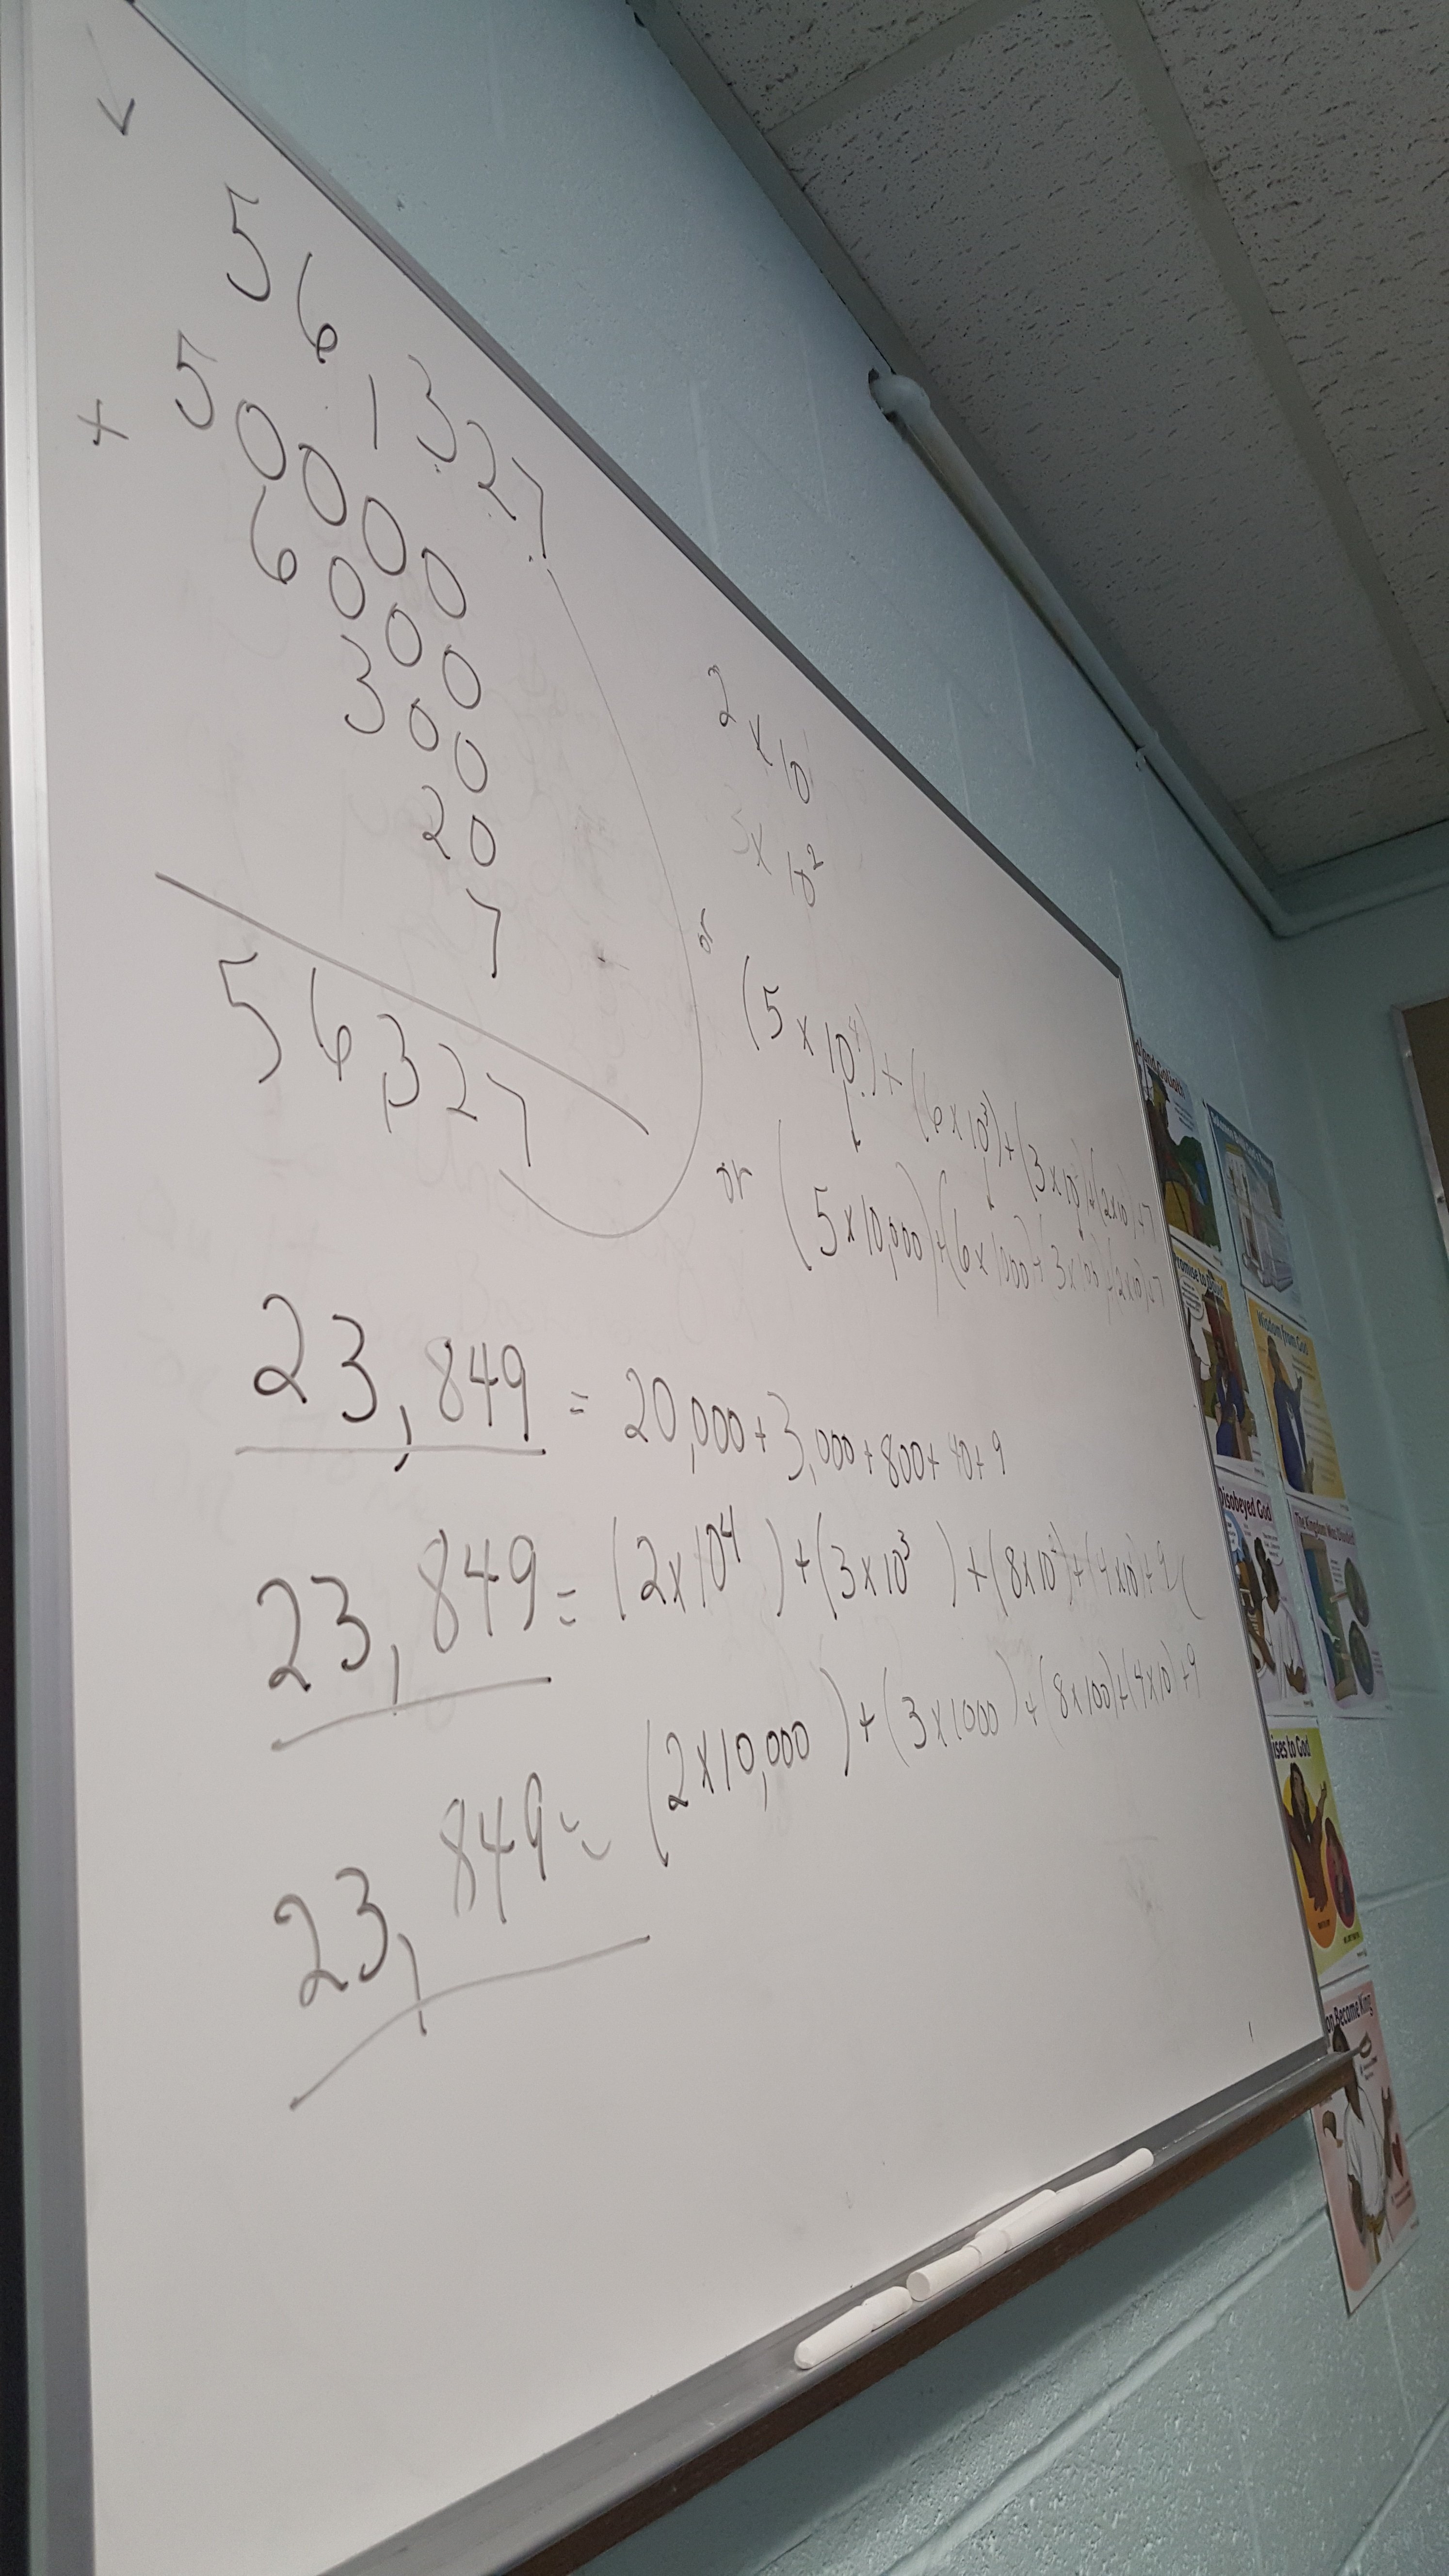 56,327
+ 50000
6000
300
20
7
56,327
2 x 10
3 x 10²
or (5 x 10⁴) + (6 x 10³) + (3 x 10²) + (2x10) + 7
or (5 x 10,000) + (6 x 1000) + (3 x 100) + (2x10) + 7
23,849 = 20,000 + 3,000 + 800 + 40 + 9
23,849 = (2 x 10⁴) + (3 x 10³) + (8 x 10²) + (4 x 10) + 9
23,849 = (2 x 10,000) + (3 x 1000) + (8 x 100) + (4 x 10) + 9
Goliath
Promise to
Wisdom from God
Disobeyed God
The Kingdom Was Divided
ises to God
on Become King